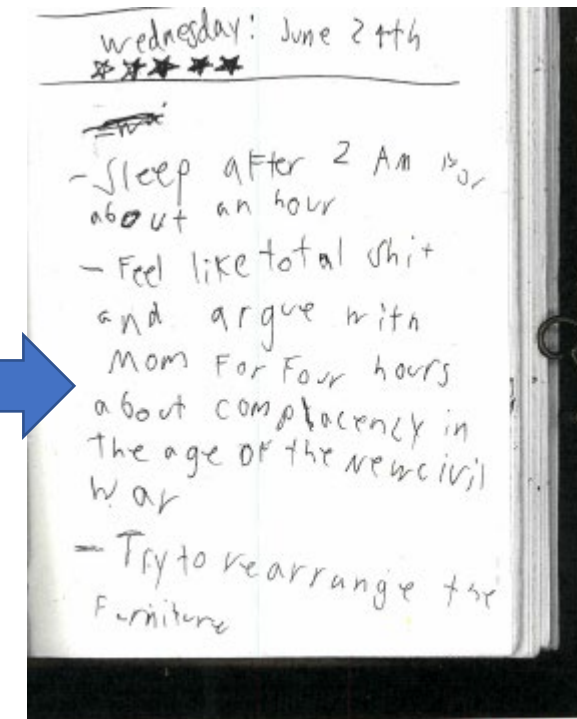 Wednesday: June 24th
- Sleep after 2 AM for
about an hour
- Feel like total shit
and argue with
Mom For Four hours
about complacency in
the age of the New civil
War
- Try to rearrange the
Furniture